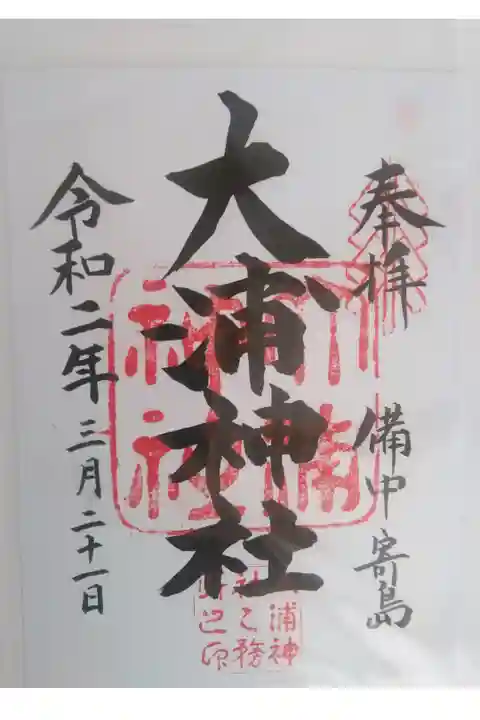 奉拝
備中 寄島
大浦神社
令和二年 三月二十一日
大浦神社
浦神
社之務
之印